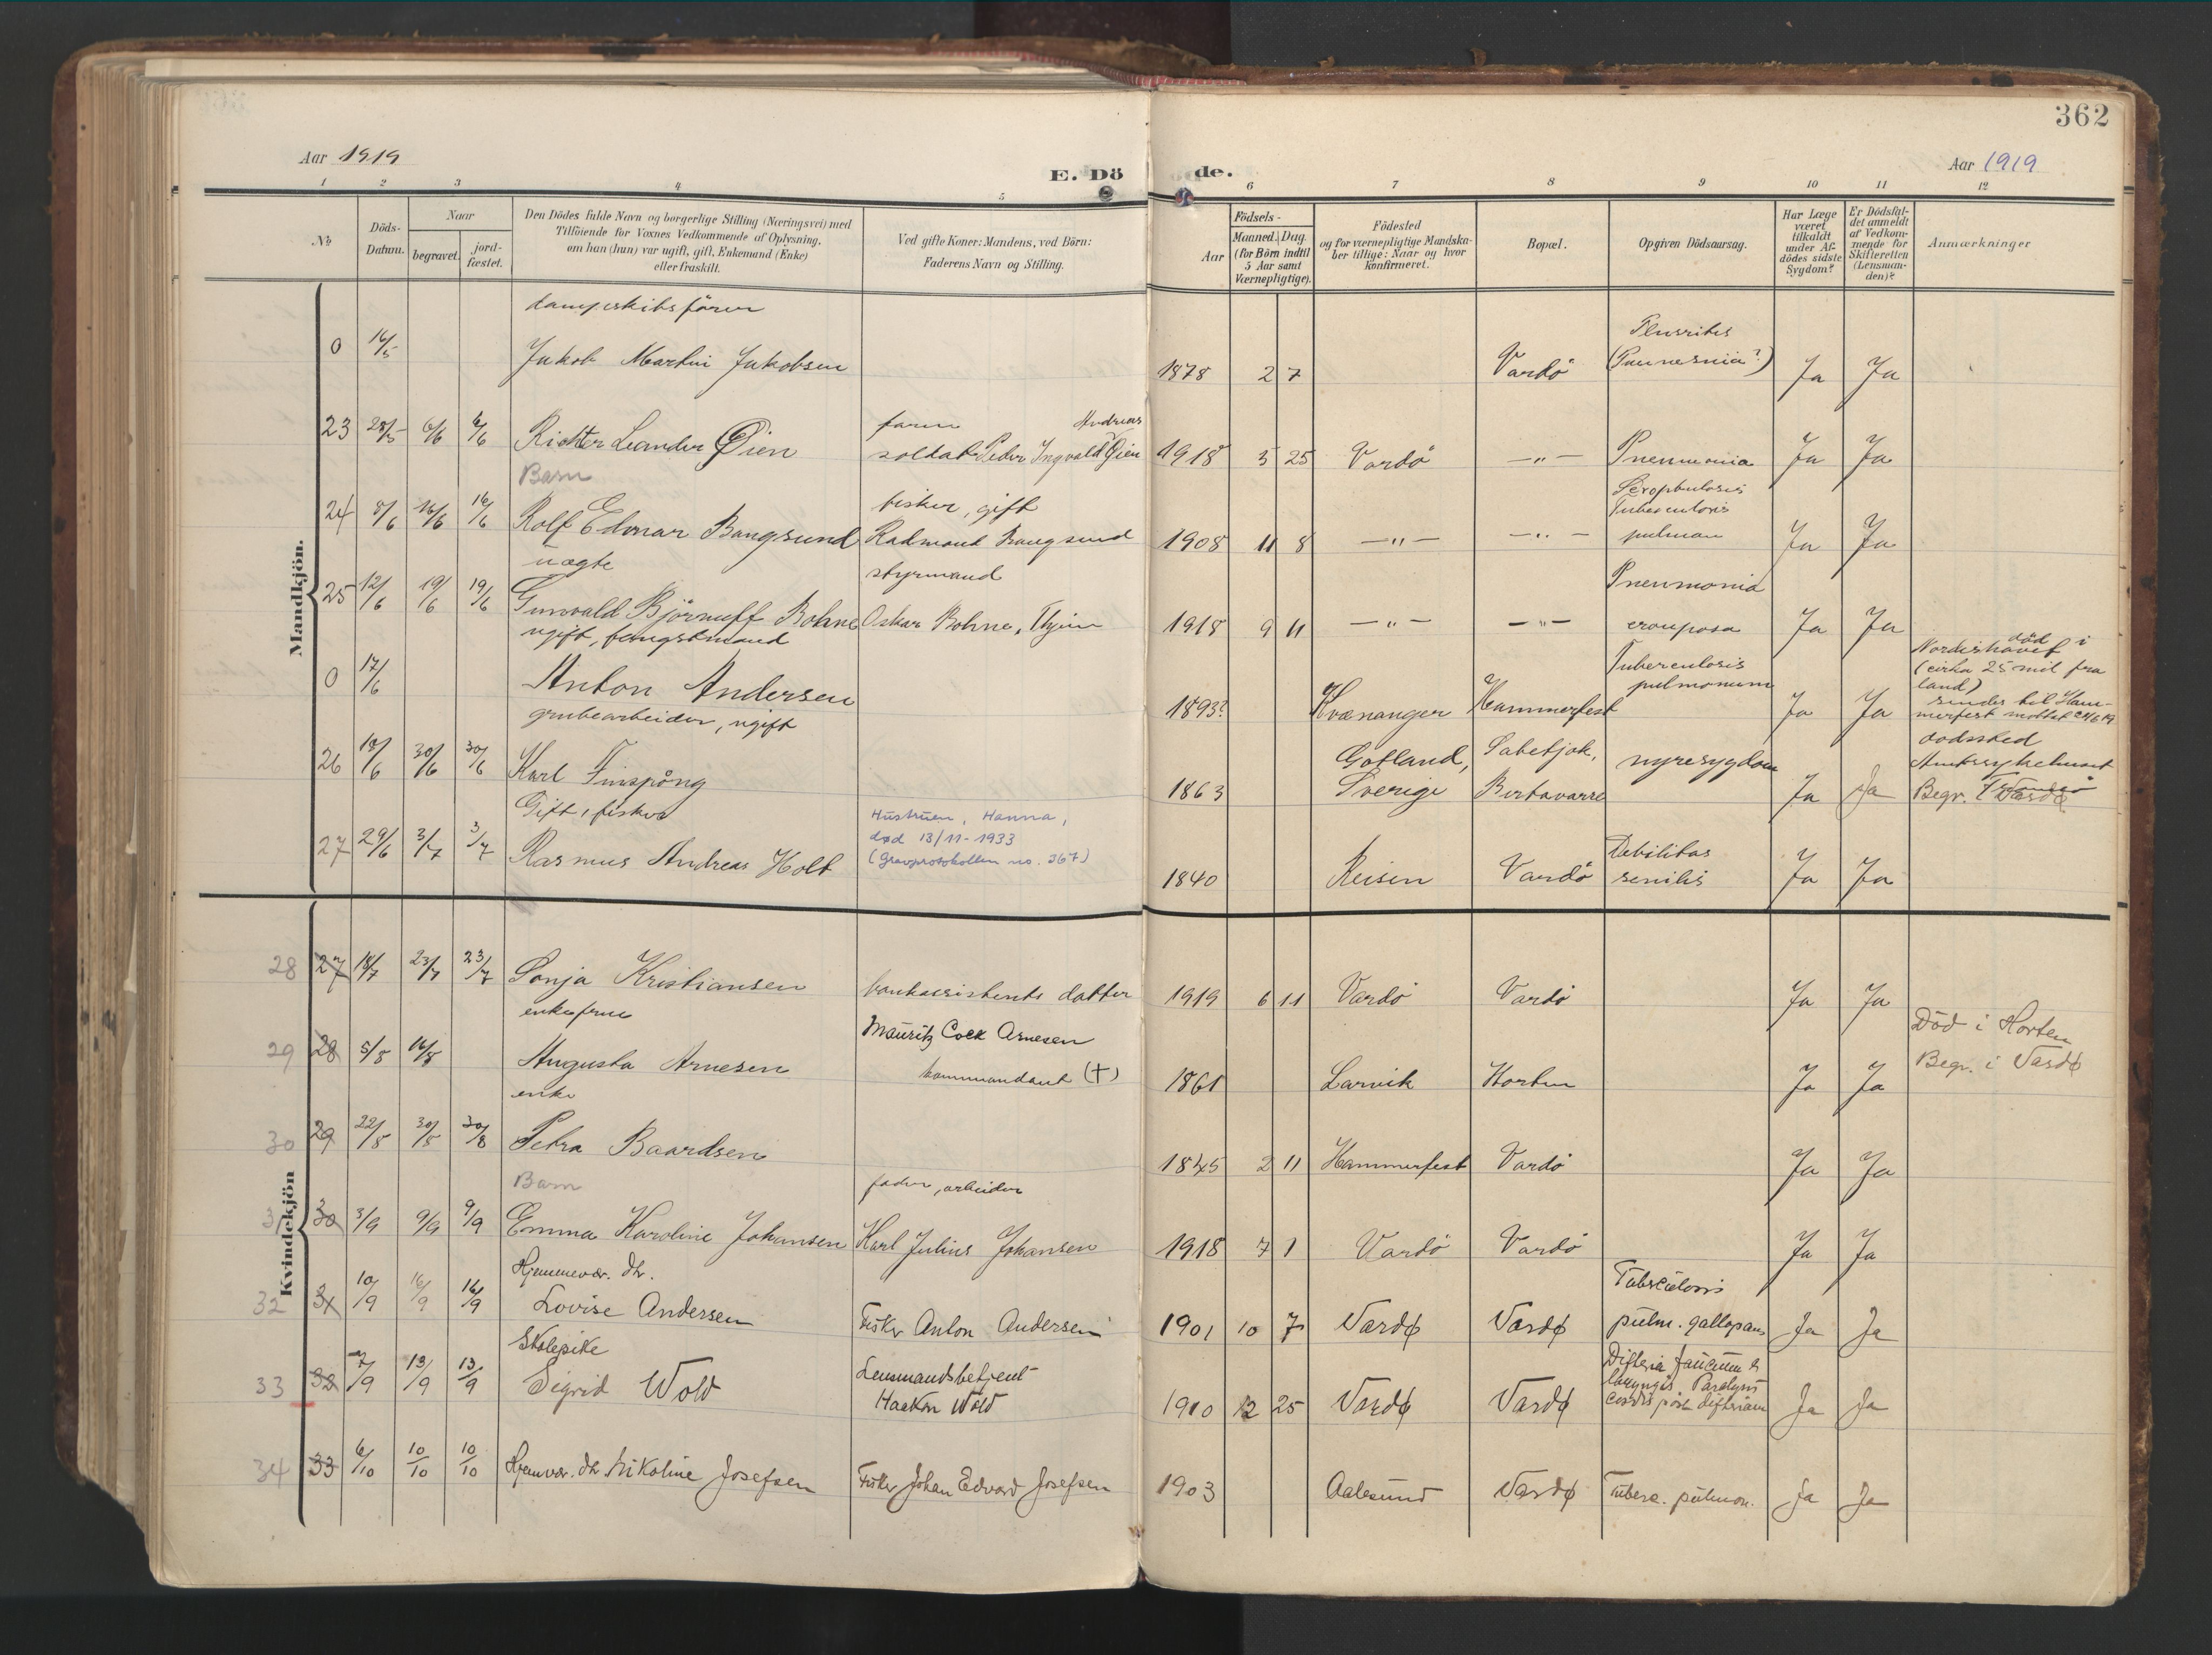 362
Aar 1919
E. Dö
de.
Aar 1919
1 2 3 4 5 6 7 8 9 10 11 12
No
Döds-
Datum.
Naar
begravet.
jord-
fæstet.
Den Dödes fulde Navn og borgerlige Stilling (Næringsvei) med
Tilföiende for Voxnes Vedkommende af Oplysning,
om han (hun) var ugift, gift, Enkemand (Enke)
eller fraskilt.
Ved gifte Koner: Mandens, ved Börn:
Faderens Navn og Stilling.
Födsels-
Aar
Maaned. Dag.
(for Börn indtil
5 Aar samt
Værnepligtige).
Födested
og for værnepligtige Mandska-
ber tillige: Naar og hvor
konfirmeret.
Bopæl.
Opgiven Dödsaarsag.
Har Læge
været
tilkaldt
under Af-
dödes sidste
Sygdom?
Er Dödsfal-
det anmeldt
af Vedkom-
mende for
Skifteretten
(Lensman-
den)?
Anmærkninger
Mandkjön.
dampskibsförer
0 16/5 Jakob Martin Jakobsen 1878 2 7 Vardö Ja Ja
Pleuritis
(Pneumonia?)
23 28/5 6/6 6/6 Richter Leander Öien
Andreas
soldat Peder Ingvald Öien 1918 5 25 Vardö —"— Pneumonia Ja Ja
Barn
24 8/6 16/6 16/6 Rolf Edmar Bangsund
fisker, gift
Radmand Bangsund 1908 11 8 —"— —"— Ja Ja
Scrophulosis
Tuberculosis
pulmon
uægte
25 12/6 19/6 19/6 Gunvald Björnulf Bohne
styrmand
Oskar Bohne, Thjem 1918 9 11 —"— —"— Ja Ja
Pneumonia
crouposa
ugift, fangstmand
0 17/6 Anton Andersen 1893? Kvænanger Hammerfest Ja Ja
Tuberculosis
pulmonum
död i
Nordishavet
(cirka 25 mil fra
land)
sendes til Ham-
merfest
grubearbeider, ugift
26 18/6 30/6 30/6 Karl Finspång 1863
Gotland,
Sverige
Sabetjok,
Birtavarre
nyresygdom Ja Ja
dödssted
Amtssykehuset
Tromsö
Begr. i Vardø
Gift, fisker
27 29/6 3/7 3/7 Rasmus Andreas Holt
Hustruen, Hanna,
død 13/11-1933
(Gravprotokollen no. 367)
1840 Reisen Vardö Ja Ja
Debilitas
senilis
Kvindekjön
28 27 18/7 23/7 23/7 Sonja Kristiansen bankassistents datter 1919 6 11 Vardö Vardö Ja Ja
enkefrue
29 28 5/8 16/8 Augusta Arnesen
Mauritz Cock Arnesen
kommandant (+) 1861 Larvik Horten Ja Ja
Död i Horten
Begr. i Vardø
enke
30 29 22/8 30/8 30/8 Petra Baardsen 1845 2 11 Hammerfest Vardö Ja Ja
Barn
31 30 3/9 9/9 9/9 Emma Karoline Johansen
fader, arbeider
Karl Julius Johansen 1918 7 1 Vardö Vardö Ja Ja
Hjemmevær. dtr.
32 31 10/9 16/9 16/9 Lovise Andersen Fisker Anton Andersen 1901 10 7 Vardø Vardø
Tuberculosis
pulm. gallopans Ja Ja
Skolepike
33 32 7/9 13/9 13/9 Sigrid Wold
Lensmandsbetjent
Haakon Wold 1910 12 25 Vardø Vardø
Difteria faucium &
laryngis. Paralysis
cordis post difteriam Ja Ja
34 33 6/10 10/10 10/10 Hjemvær. dtr Nikoline Josefsen Fisker Johan Edvard Josefsen 1903 Aalesund Vardø Tuberc. pulmon. Ja Ja